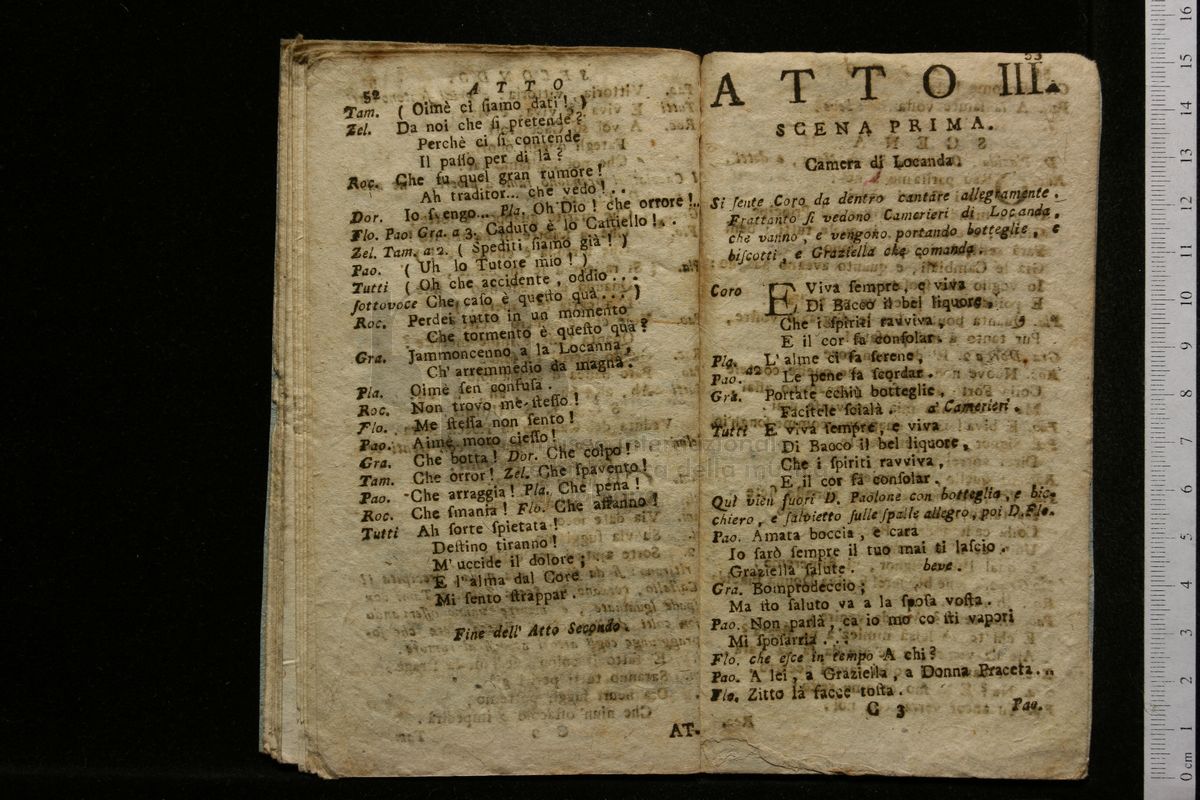 52
ATTO
Tam. ( Oimè ci siamo dati ! )
Zel. Da noi che si pretende ?
Perchè ci si contende
Il passo per di là ?
Roc. Che fu quel gran rumore !
Ah traditor... che vedo ! . .
Dor. Io svengo... Pla. Oh Dio ! che orrore !..
Flo. Pao. Gra. a 3. Caduto è lo Castiello ! . .
Zel. Tam. a 2. ( Spediti siamo già ! )
Pao. ( Uh lo Tutore mio ! )
Tutti ( Oh che accidente , oddio . . .
sottovoce Che caso è questo quà . . . )
Roc. Perdei tutto in un momento
Che tormento è questo quà ?
Gra. Jammoncenno a la Locanna ,
Ch' arremmedio da magnà .
Pla. Oimè sen confusa .
Roc. Non trovo me stesso !
Flo. Me stessa non sento !
Pao. Aimè moro ciesso !
Gra. Che botta ! Dor. Che colpo !
Tam. Che orror ! Zel. Che spavento !
Pao. Che arraggia ! Pla. Che pena !
Roc. Che smania ! Flo. Che affanno !
Tutti Ah sorte spietata !
Destino tiranno !
M' uccide il dolore ;
E l' alma dal Core
Mi sento strappar .
Fine dell' Atto Secondo .
AT-
53
ATTO III.
SCENA PRIMA.
Camera di Locanda.
Si sente Coro da dentro cantare allegramente .
Frattanto si vedono Camerieri di Locanda ,
che vanno , e vengono portando botteglie , e
biscotti , e Graziella che comanda .
Coro E Viva sempre , e viva
Di Bacco il bel liquore ,
Che i spiriti ravviva ,
E il cor fa consolar .
Pla. L' alme ci fa serene ,
Pao. a 2 Le pene fa scordar .
Gra. Portate cchiù botteglie ,
Facitele scialà . a' Camerieri .
Tutti E viva sempre , e viva
Di Bacco il bel liquore ,
Che i spiriti ravviva ,
E il cor fa consolar .
Quì vien fuori D. Paolone con botteglia , e bic-
chiero , e salvietto sulle spalle allegro , poi D. Flo.
Pao. Amata boccia , e cara
Io sarò sempre il tuo mai ti lascio .
Graziella salute . beve .
Gra. Bomprodeccio ;
Ma sto saluto va a la sposa vosta .
Pao. Non parlà , ca io mo co sti vapori
Mi sposarria . . .
Flo. che esce in tempo A chi ?
Pao. A lei , a Graziella , a Donna Praceta . . .
Flo. Zitto là facce tosta .
G 3
Pao.